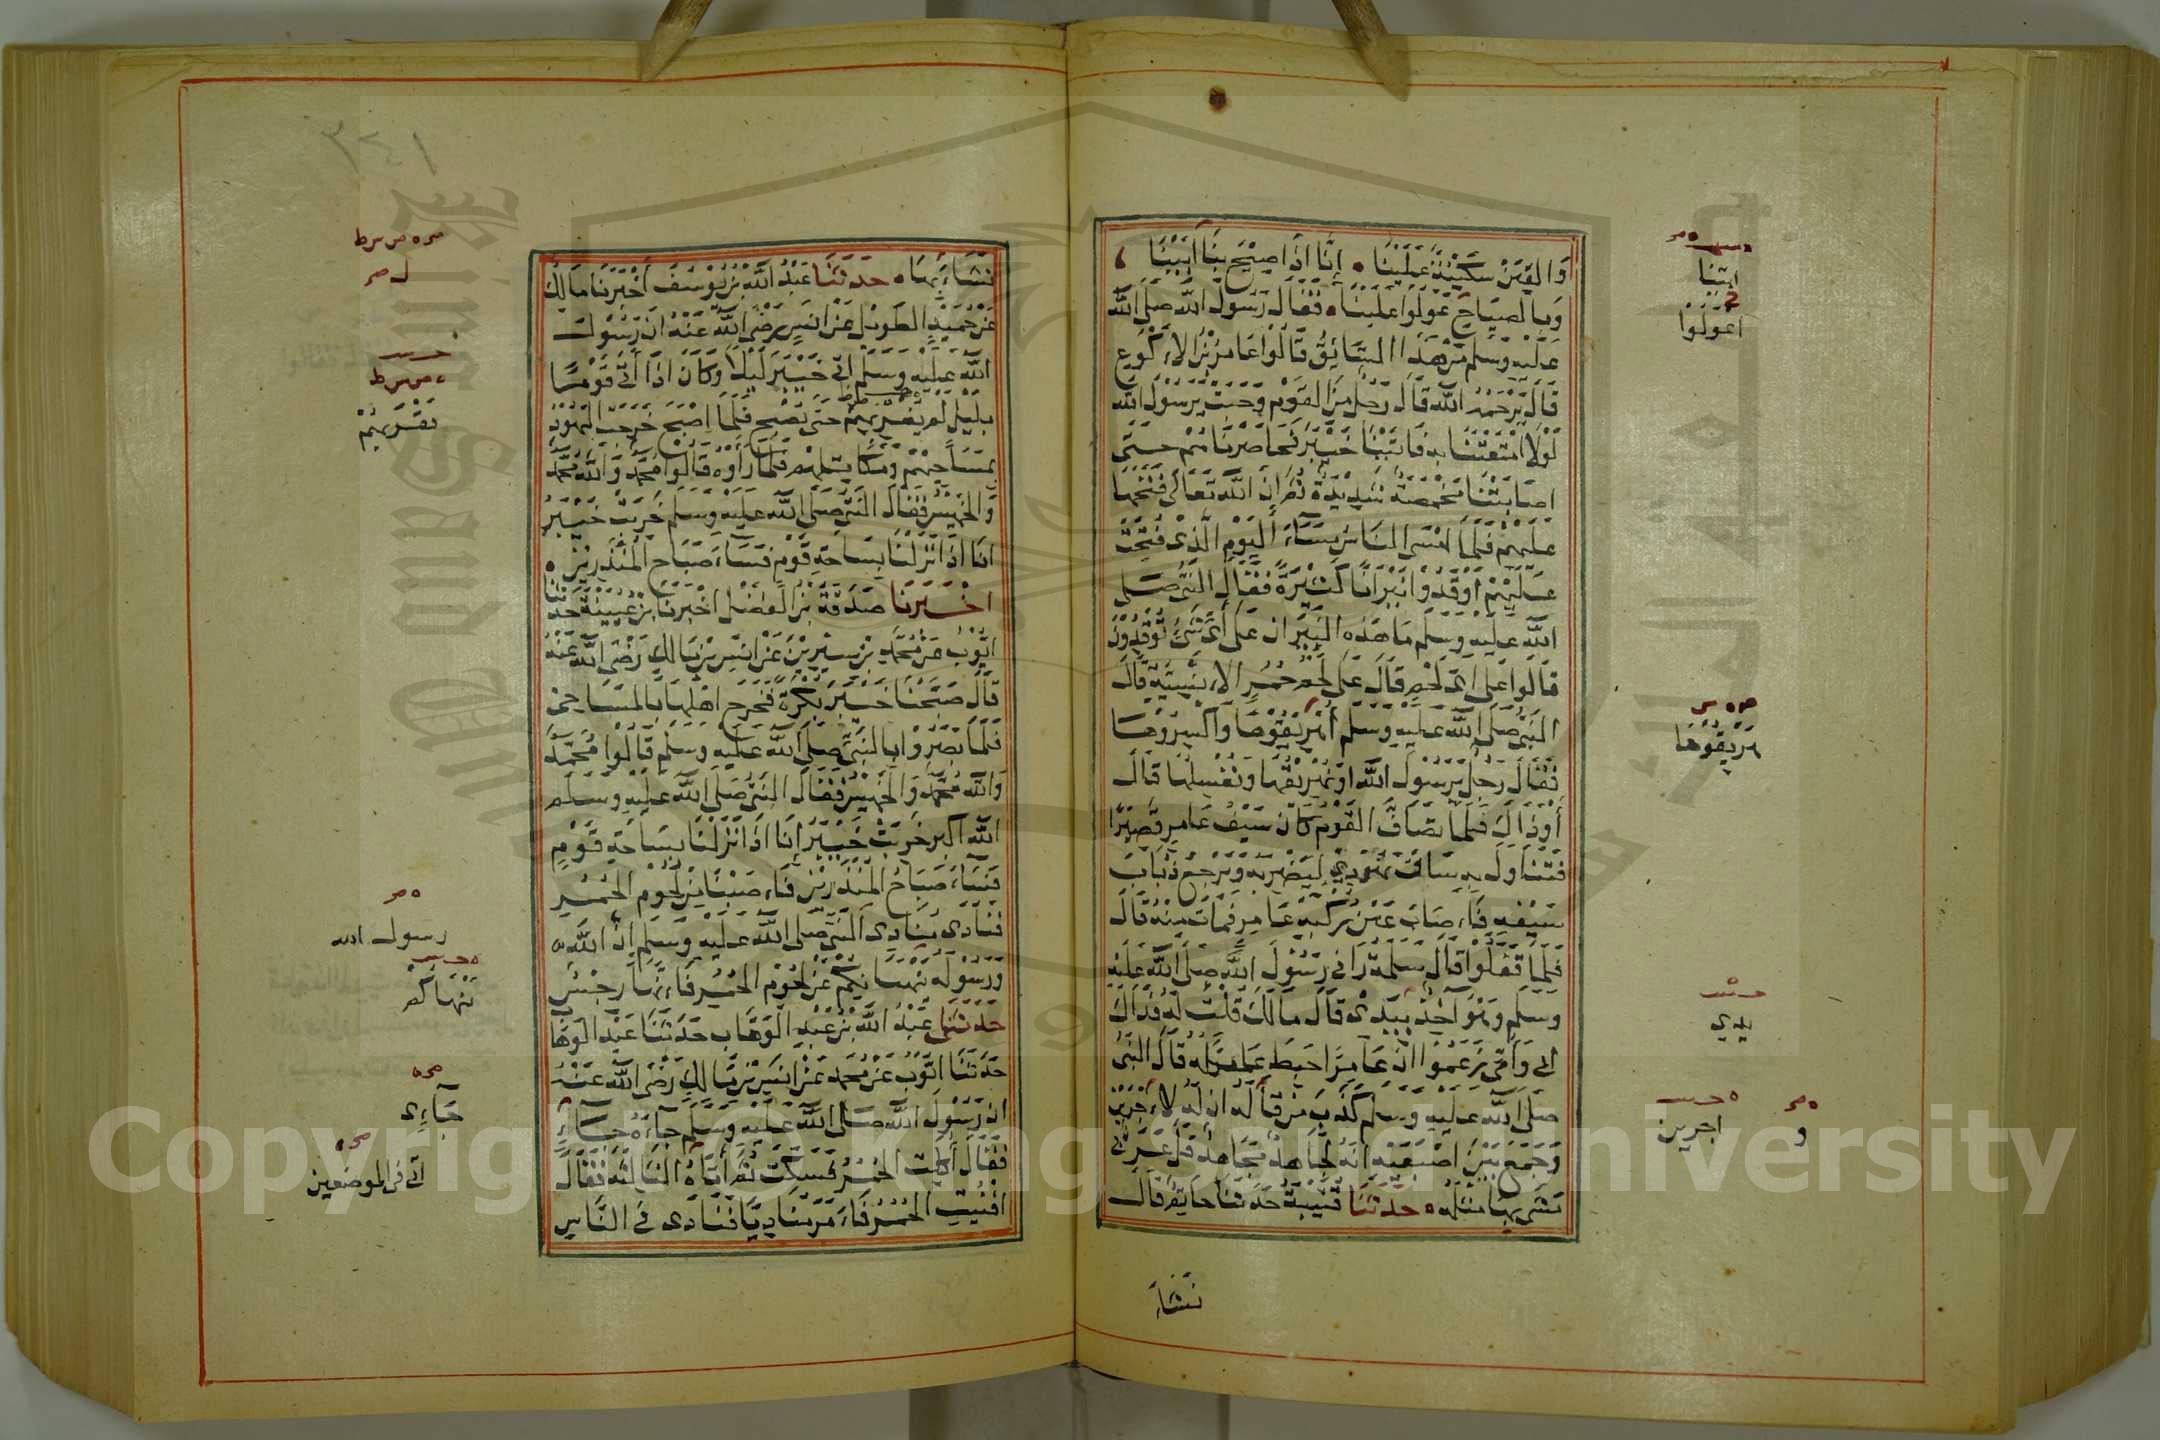 وَالقِيَنْ سَكِيْنَةً عَلَيْنَا ٠ إِنَّا اِذَا صِيْحَ بِنَا أَبَيْنَا
وَبِالصِيَاحِ عَوَّلُوْا عَلَيْنَا ٠ فَقَالَ رَسُوْلُ اللّٰه صَلَى اللّٰه
عَلَيْهِ وَسَلم مَنْ هَذَا السَّائِقُ قَالُوْا عَامِرُ بْنُ الأَكْوَعِ
قَالَ يَرْحَمُهُ اللّٰه قَالَ رَجُل مِنَ القَوْمِ وَجَبَتْ يَرَسُوْلَ اللّٰه
لَوْلَا اَمْتَعْتَنَا بِهِ فَاَتَيْنَا خَيْبَرَ فَحَاصَرْنَاهُمْ حَتَى
اصَابَتْنَا مَخْمَصَةٌ شَدِيْدَةٌ ثُمَّ اِنَ اللّٰه تَعَالَى فَتَحَهَا
عَلَيْهِمْ فَلَمَّا اَمْسَى النَاسُ مَسَاءَ الْيَوْمِ الَّذِىْ فُتِحَتْ
عَلَيْهِمْ اَوْقَدُوْا نِيْرَانًا كَثِيْرَةً فَقَالَ النَبِىُّ صَلى
اللّٰه عَلَيْهِ وَسَلم مَا هَذِهِ النِيْرَان عَلَى أَىِّ شَيْئٍ تُوْقِدُوْنَ
قَالُوا عَلَى لَحْمٍ قَالَ عَلَى اَىِّ لَحْمٍ قَالُوا لَحْم حُمُرِ الاِنْسِيَّةِ قَالَ
النَبِىُّ صَلَى اللّٰه عَلَيْهِ وَسَلم أَهْرِيْقُوْهَا وَاكْسِرُوْهَا
فَقَالَ رَجُلٌ يَرَسُوْلَ اللّٰه اَوْ نُهْرِيْقُهَا وَنَغْسِلُهَا قَالَ
أَوْ ذَاكَ فَلَمَّا تَصَافَّ القَوْمُ كَانَ سَيْفُ عَامِرٍ قَصِيْرًا
فَتَنَاوَلَ بِهِ سَاقَ يَهُوْدِيٍّ لِيَضْرِبَهُ وَيَرْجِعُ ذُبَابُ
سَيْفِهِ فَاَصَابَ عَيْنَ رُكْبَةِ عَامِرٍ فَمَاتَ مِنْهُ قَالَ
فَلَمَّا قَفَلُوْا قَالَ سَلَمَةُ رَاٰنِى رَسُوْلُ اللّٰه صَلَى اللّٰه عَلَيْهِ
وَسَلم وَهُوَ آخِذٌ بِيَدِىْ قَالَ مَا لَكَ قُلْتُ لَهُ فَدَاكَ
اَبِى وَاُمِّى زَعَمُوْا اَنَّ عَامِرًا حَبِطَ عَمَلُهُ قَالَ النَبِىُّ
صَلَى اللّٰه عَلَيْهِ وَسَلم كَذَبَ مَنْ قَالَهُ اِنَ لَهُ لأَجْرَيْنِ
وَجَمَعَ بَيْنَ اصْبَعَيْهِ اِنَهُ لَجَاهِدٌ مُجَاهِدٌ قَلَّ عَرَبِىٌّ
مَشَى بِهَا مِثْلَهُ ٠ حَدَثَنَا قُتَيْبَةُ حَدَثَنَا حَاتِمٌ قَالَ
نَشَأَ
اتينا
اَعْوَلُوْا
هَرِيْقُوْهَا
يدي
اجرين
و
نَشَأَ بِهَا ٠ حَدَثَنَا عَبْدُ اللّٰه بْنُ يُوْسُفَ أَخْبَرَنَا مَالِكٌ
عَنْ حُمَيْدٍ الطَوِيْلِ عَنْ اَنَسٍ رَضَى اللّٰه عَنْهُ اَنَ رَسُوْلَ
اللّٰه عَلَيْهِ وَسَلَمَ اَتَى خَيْبَرَ لَيْلًا وَكَانَ اِذَا أَتَى قَوْمًا
بِلَيْلٍ لَمْ يُغِرْ بِهِمْ حَتَى يُصْبِحَ فَلَمَّا اصْبَحَ خَرَجَتِ الْيَهُوْدُ
بِمَسَاحِيْهِمْ وَمَكَاتِلِهِمْ فَلَمَّا رَأَوْهُ قَالُوْا مُحَمَّدٌ وَاللّٰه مُحَمَّدٌ
وَالخَمِيْسُ فَقَالَ النَبِىُّ صَلَى اللّٰه عَلَيْهِ وَسَلَم خَرِبَتْ خَيْبَرُ
اِنَا اِذَا نَزَلْنَا بِسَاحَةِ قَوْمٍ فَسَاءَ صَبَاحُ الْمُنْذَرِيْنَ ٠
اخْبَرَنَا صَدَقَةُ بْنُ الفَضْلِ اَخْبَرَنَا بْنُ عُيَيْنَةَ حَدَثَنَا
اَيُّوْبُ عَنْ مُحَمَّدِ بْنِ سِيْرِيْنَ عَنْ اَنَسِ بْنِ مَالِكٍ رَضَى اللّٰه عَنْهُ
قَالَ صَبَّحْنَا خَيْبَرَ بُكْرَةً فَخَرَجَ اهْلُهَا بِالمَسَاحِىْ
فَلَمَّا بَصُرُوْا بِالنَبِىِّ صَلَى اللّٰه عَلَيْهِ وَسَلم قَالُوْا مُحَمَّدٌ
وَاللّٰه مُحَمَّدٌ وَالخَمِيْسُ فَقَالَ النَبِىُّ صَلَى اللّٰه عَلَيْهِ وَسَلَم
اللّٰه اكبر خَرِبَتْ خَيْبَرُ اِنَا اِذَا نَزَلْنَا بِسَاحَةِ قَوْمٍ
فَسَاءَ صَبَاحُ المُنْذَرِيْنَ فَاَصَبْنَا مِنْ لُحُوْمِ الحُمُرِ
فَنَادَى مُنَادِى النَبِىِّ صَلَى اللّٰه عَلَيْهِ وَسَلَم اِنَّ اللّٰه
وَرَسُوْلَهُ يَنْهَيَانِكُمْ عَنْ لُحُوْمِ الحُمُرِ فَاِنَّهَا رِجْسٌ
حَدَثَنَا عَبْدُ اللّٰه بْنُ عَبْدِ الوَهَاب حَدَثَنَا عَبْدُ الوَهَاب
حَدَثَنَا اَيُّوْبُ عَنْ مُحَمَّد عَنْ اَنَسِ بْنِ مَالِكٍ رَضَى اللّٰه عَنْهُ
اَنَ رَسُوْلَ اللّٰه صَلى اللّٰه عَلَيْهِ وَسَلَّمَ جَاءَهُ جَاءٍ
فَقَالَ أُكِلَتِ الحُمُرُ فَسَكَتَ ثُمَّ أَتَاهُ الثَالِثَة فَقَالَ
اُفْنِيَتِ الحُمُرُ فَاَمَرَ مُنَادِيًا فَنَادَى فِى النَّاسِ
يَقْرَبهُمْ
رسول الله
يَنْهَاكُمْ
جَآءِى
اتى فى الموضعين
٢٤١
Copyright © King Saud University